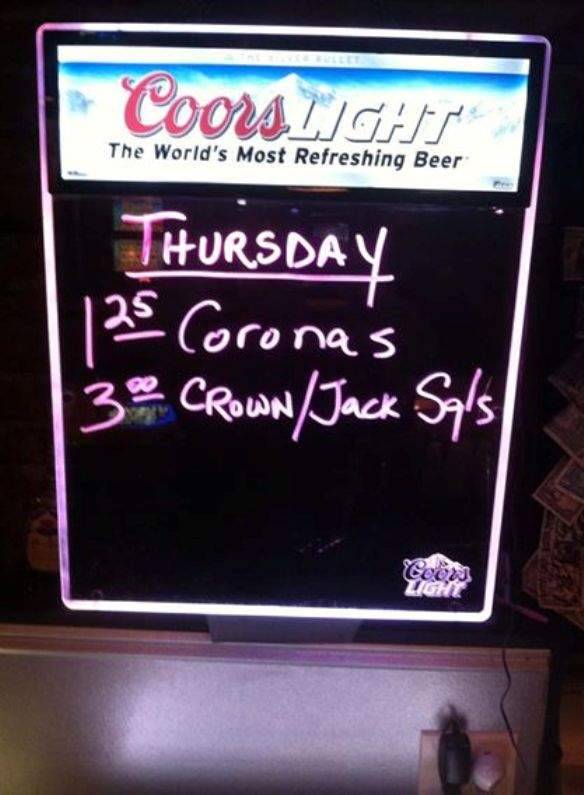 THE SILVER BULLET
Coors LIGHT
The World's Most Refreshing Beer
THURSDAY
1 25 Coronas
3 00 CROWN/JACK Sgls
Coors
LIGHT